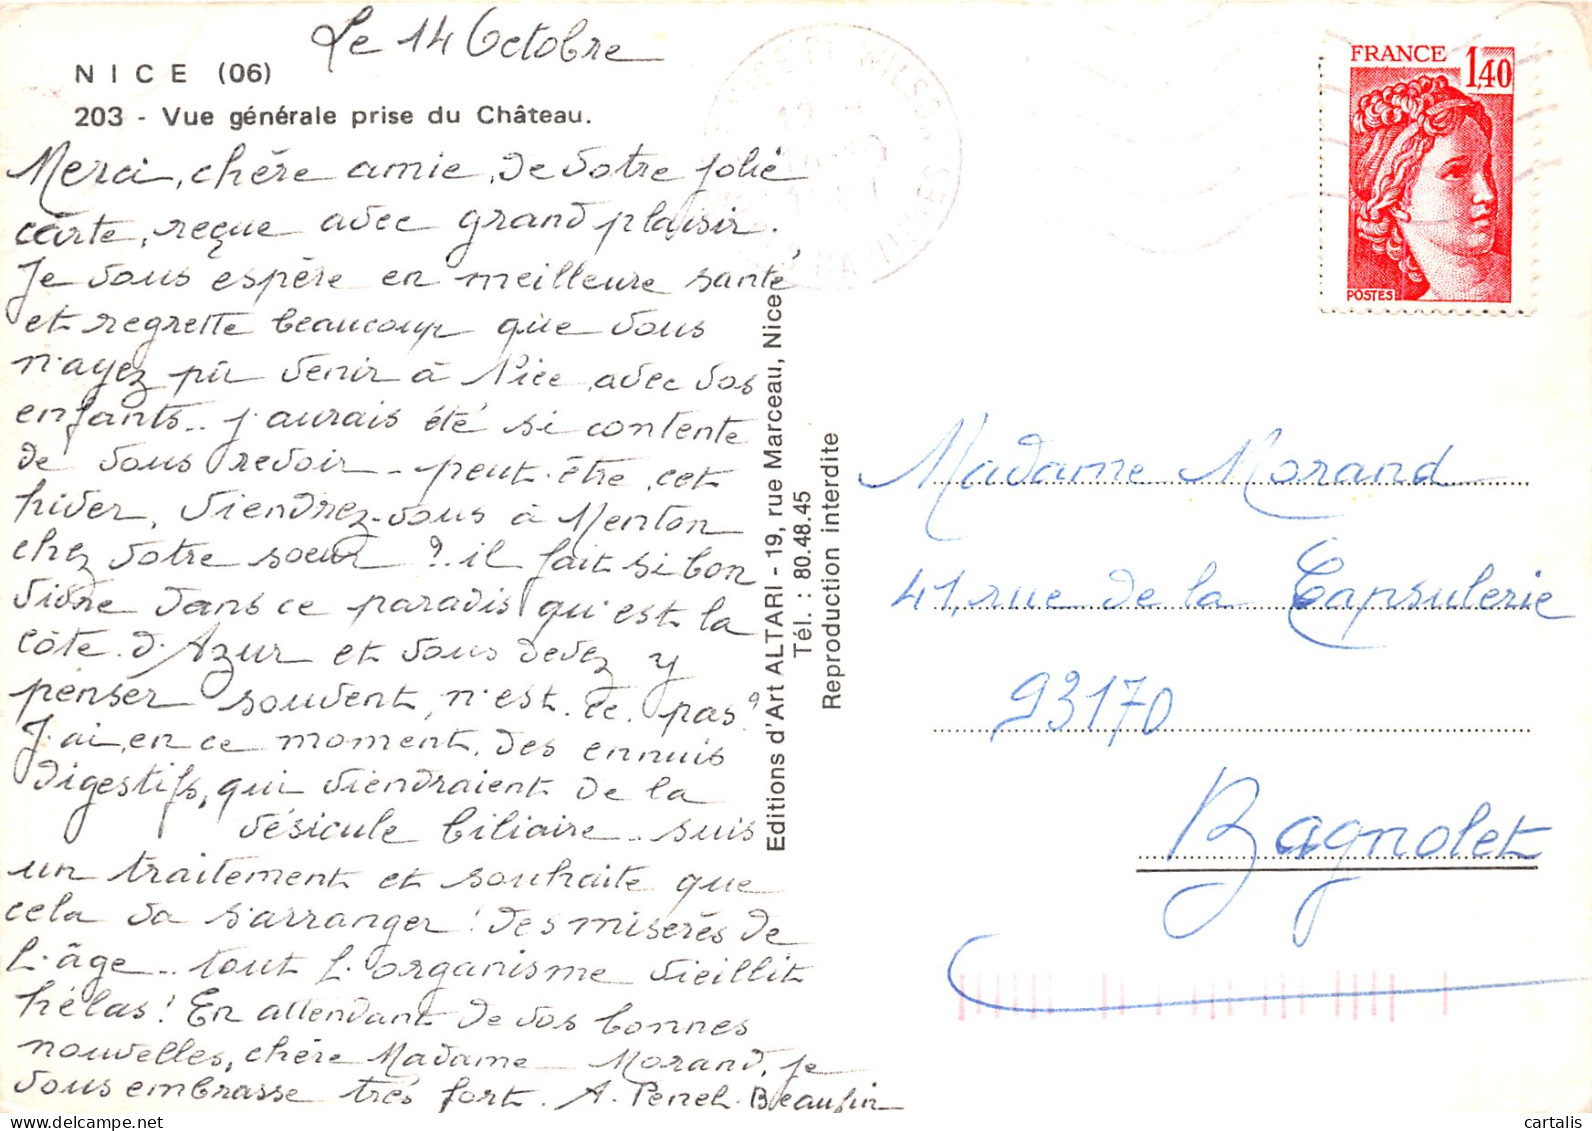 Le 14 Octobre
NICE (06)
203 - Vue générale prise du Château.
Merci, chère amie, de votre jolie
carte, reçue avec grand plaisir.
Je vous espère en meilleure santé
et regrette beaucoup que vous
n'ayez pû venir à Nice, avec vos
enfants.. j'aurais été si contente
de vous revoir - peut-être, cet
hiver, viendrez-vous à Menton
chez votre soeur ? il fait si bon
vivre dans ce paradis qu'est la
côte d'Azur et vous devez y
penser souvent, n'est-ce pas?
J'ai, en ce moment, des ennuis
digestifs, qui viendraient de la
vésicule biliaire.. suis
un traitement et souhaite que
cela va s'arranger! des misères de
l'âge.. tout l'organisme vieillit
hélas! En attendant de vos bonnes
nouvelles, chère Madame Morand, je
vous embrasse très fort. A. Penel-Beaufin
Editions d'Art ALTARI - 19, rue Marceau, Nice
Tél. : 80.48.45
Reproduction interdite
WILSON
FRANCE 1,40
POSTES
Madame Morand
41, rue de la Capsulerie
93170
Bagnolet
cartalis